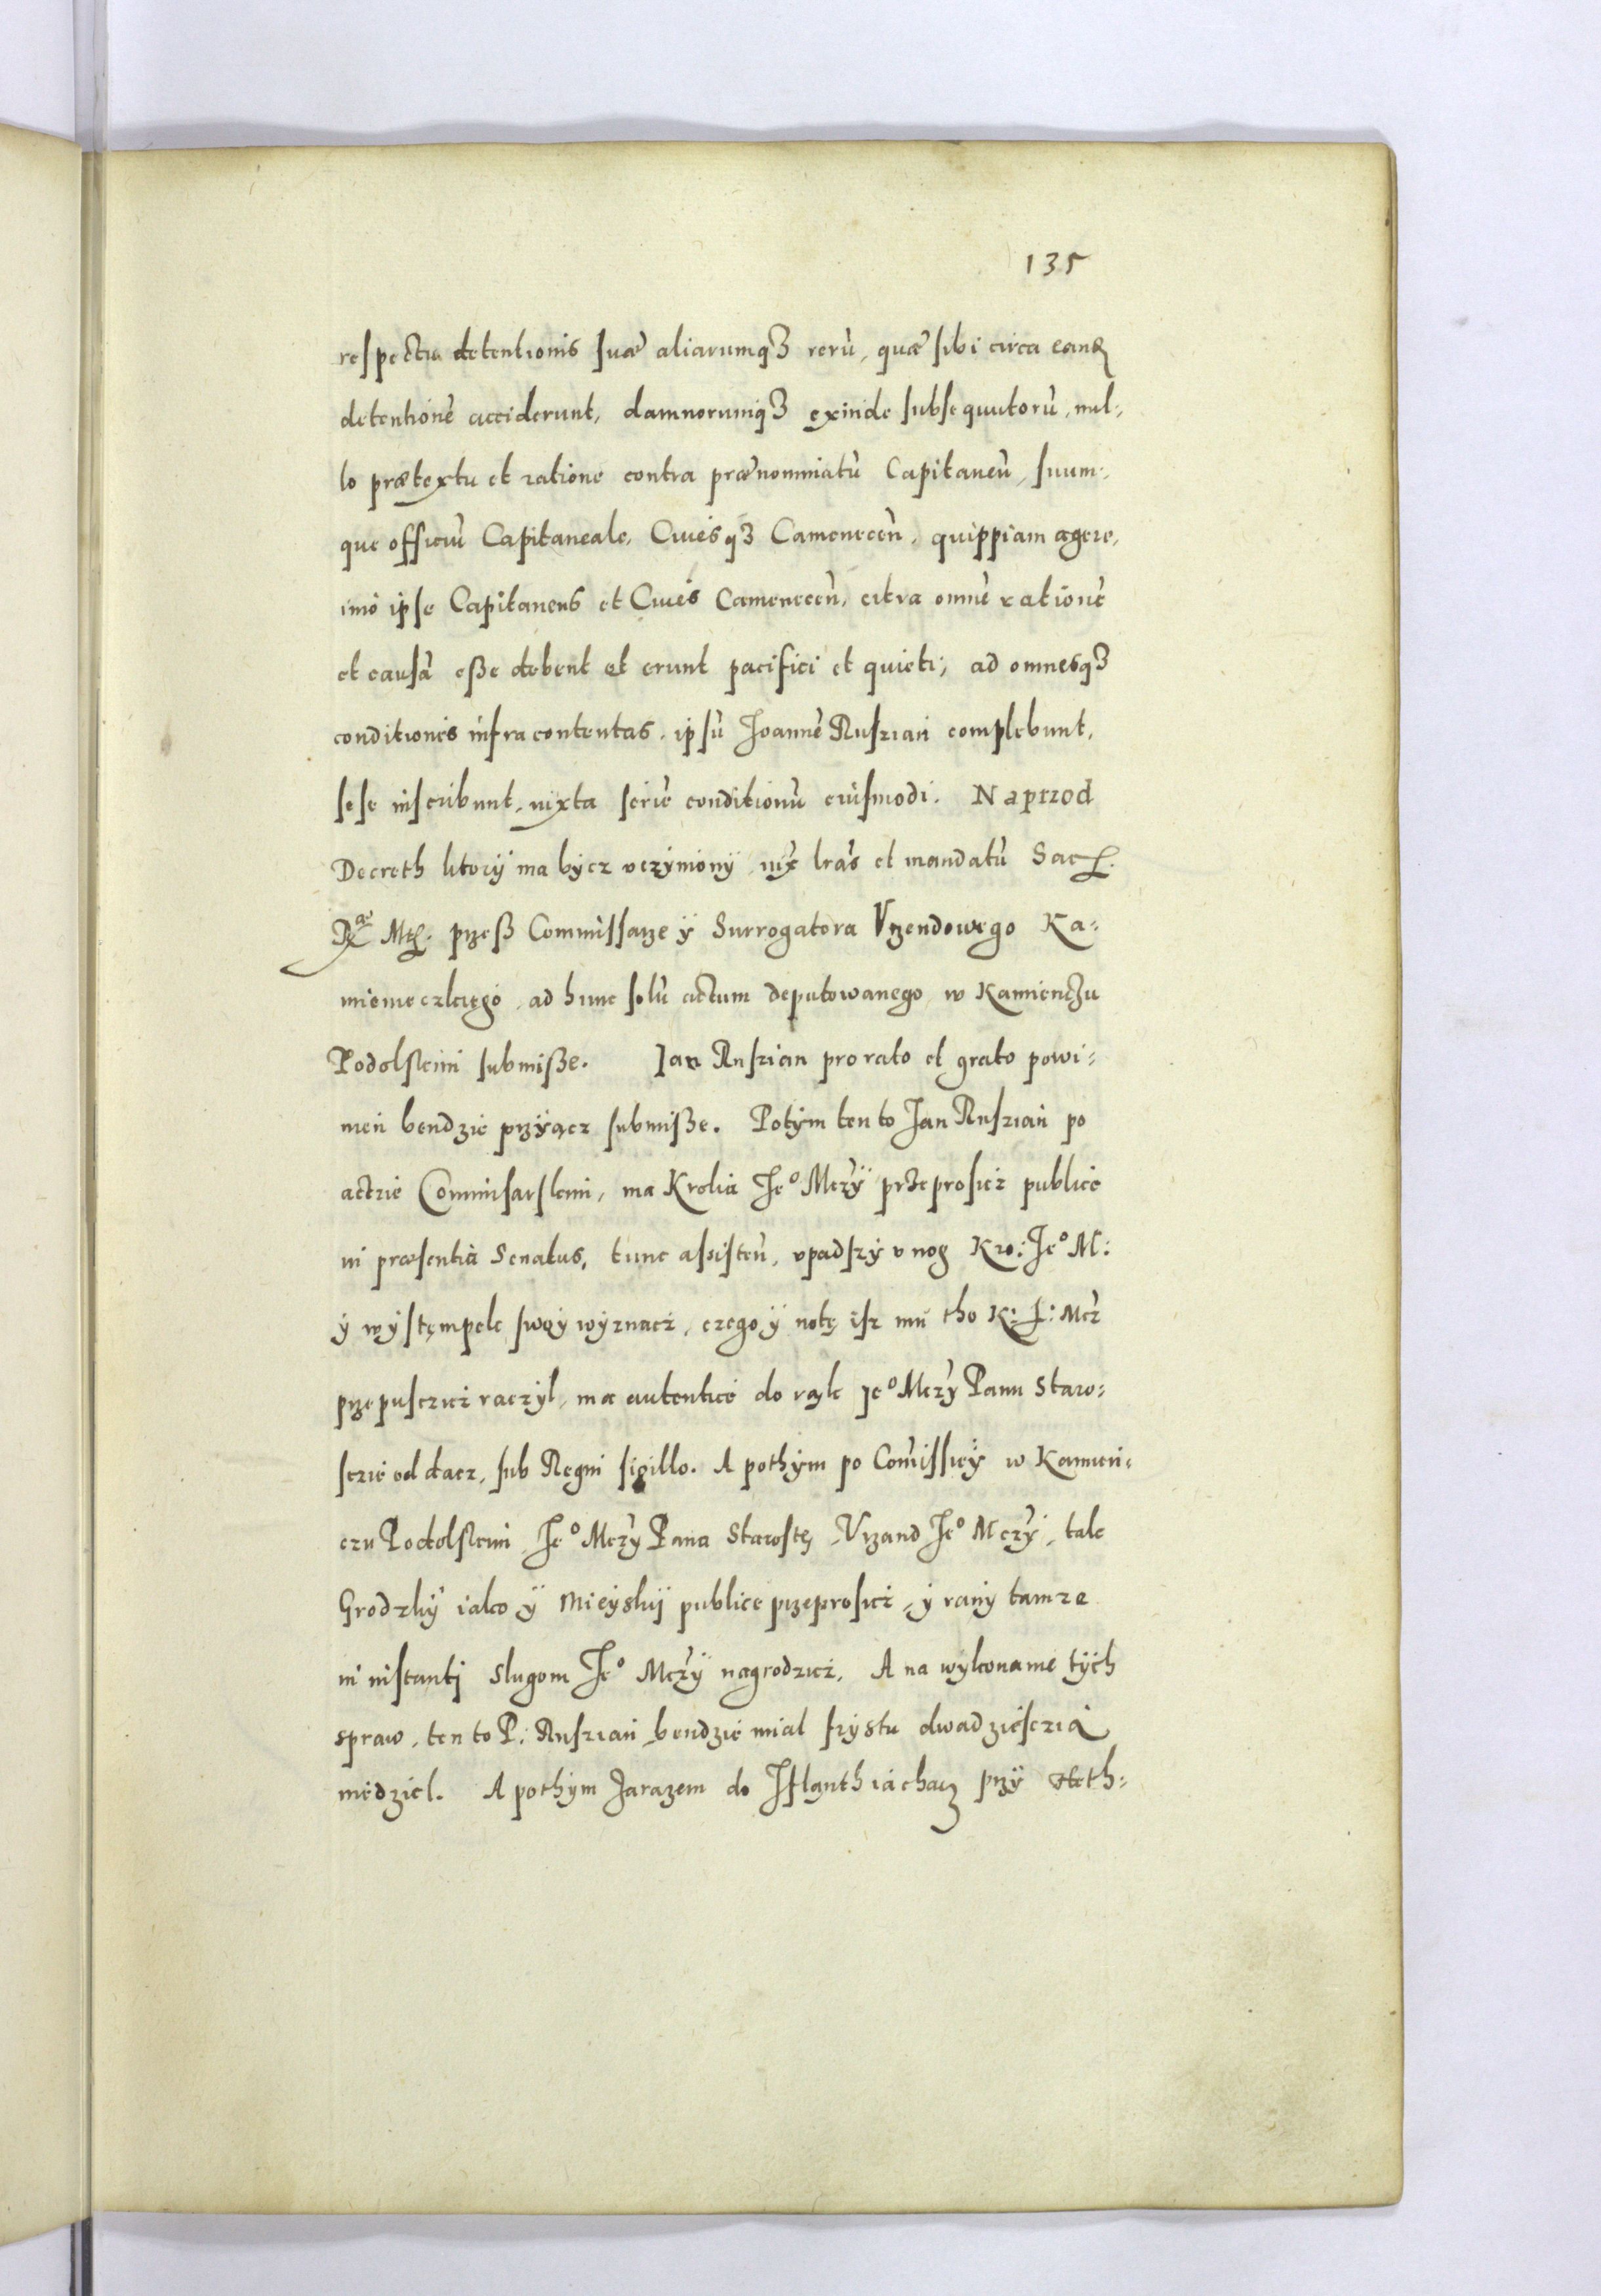 135
respectu detentionis suæ aliarumqȝ rerū, quæ sibi circa eand
detentionē acciderunt, damnorumqȝ exinde subsequutorū, nul-
lo prætextu et ratione contra prænominatū Capitaneū, suum-
que officiū Capitaneale, Ciuesqȝ Camenecen̄, quippiam agere,
imò ipse Capitaneus et Ciues Camenecen̄, citra omnē rationē
et causā esße debent et erunt pacifici et quieti; ad omnesqȝ
conditiones infra contentas, ipsū Joannē Ruszian complebunt,
sese inscribunt, iuxta seriē conditionū eiusmodi. Naprzod
Decreth ktory ma bycz vczyniony, iux̄ lrās et mandatū Sac.
Rae Mtt. przeß Commissarze y Surrogatora Vrzendowego Ka-
mienieczkiego, ad hunc solū actum deputowanego, w Kamienczu
Podolskim submisße. Jan Ruszian pro rato et grato powi-
nien bendzie przyącz submisße. Potym ten to Jan Ruszian po
actzie Commisarskim, ma Krolia Je° Mczy przeprosicz publice
in præsentia Senatus, tunc assisten̄, vpadszy v nog Kro: Je° M:
y wystempek swoy wyznacz, czego y notę isz mu tho K: J: Mcz
przepusczicz raczyl, ma autentice do rąk Je° Mczy Panu Staro-
sczie oddacz, sub Regni sigillo. A pothym po Com̄issiey w Kamien-
czu Podolskim Je° Mczy Pana Starostę, Vrzand Je° Mczy, tak
Grodzky iako y Mieysky publice przeprosicz, y rany tamze
in instanti slugom Je° Mczy nagrodzicz. A na wykonanie tych
spraw, ten to P: Ruszian bendzie mial frystu dwadziesczia
niedziel. A pothym zarazem do Jflanth iachacz przy Heth-